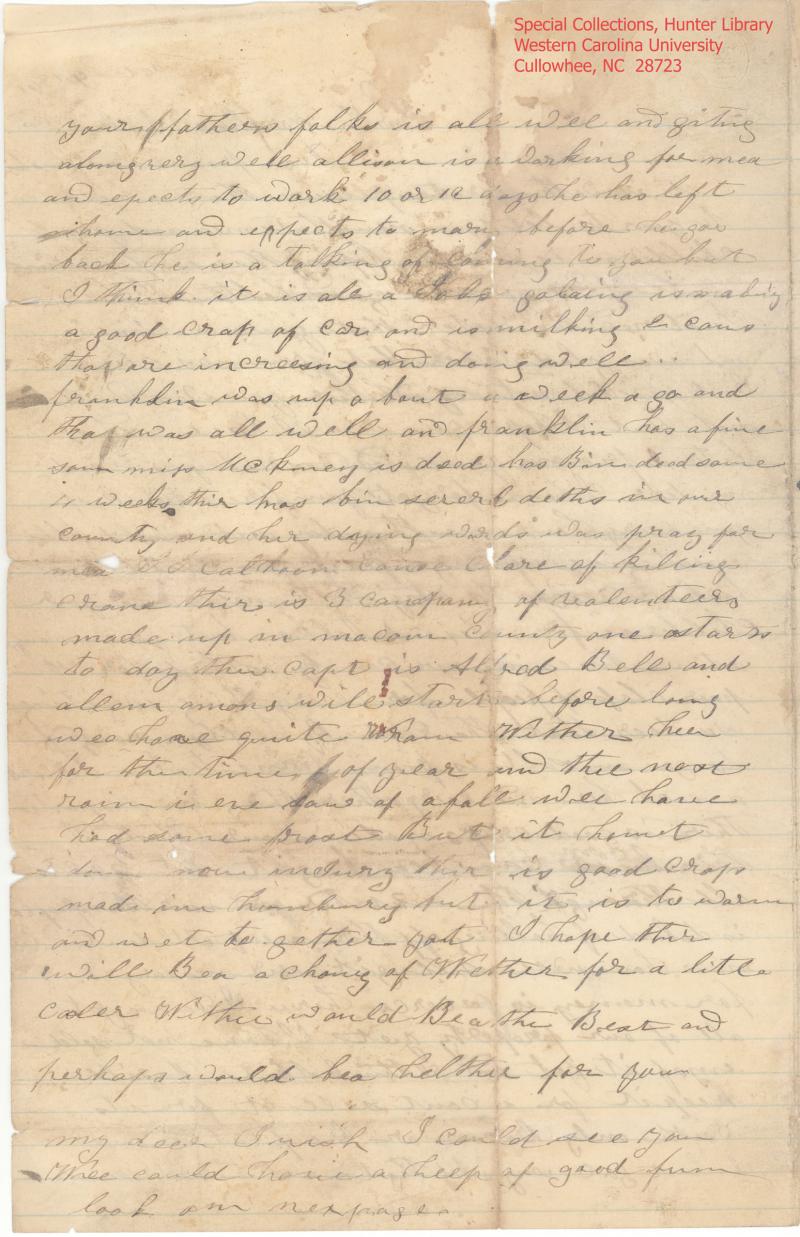 Special Collections, Hunter Library
Western Carolina University
Cullowhee, NC 28723
your fathers folks is all well and giting
along very well allison is a Working for mea
and epects to work 10 or 12 days he has left
home and expects to mary before he goe
back he is a talking of coming to you but
I think it is all a Joke is making
a good crap of corn and is milking 2 cows
thay are increesing and doing well
franklin was up a bout a week a go and
thay was all well and franklin has a fine
son miss McKiney is dead has Bin dead some
weeks thir has bin severl deths in our
county and her dying words was pray for
mea Calhoun come Clare of killing
Crane thir is 3 company of valenteers
made up in macon County one starts
to day ther capt is Alfred Bell and
allen amons will start before long
wee have quite Warm Wether heer
for the time of year and thee most
rain i eve saw of a fall wee have
had some frost But it hasnt
don now indury thir is good crops
made in but it is to warm
and wet to gether yet I hope thir
will Bea a chang of Wether for a litle
coler Wether would Bea the Best and
perhaps would bea helthier for you
my deer I wish I could see you
Wee could have a heep of good fun
look on nex page